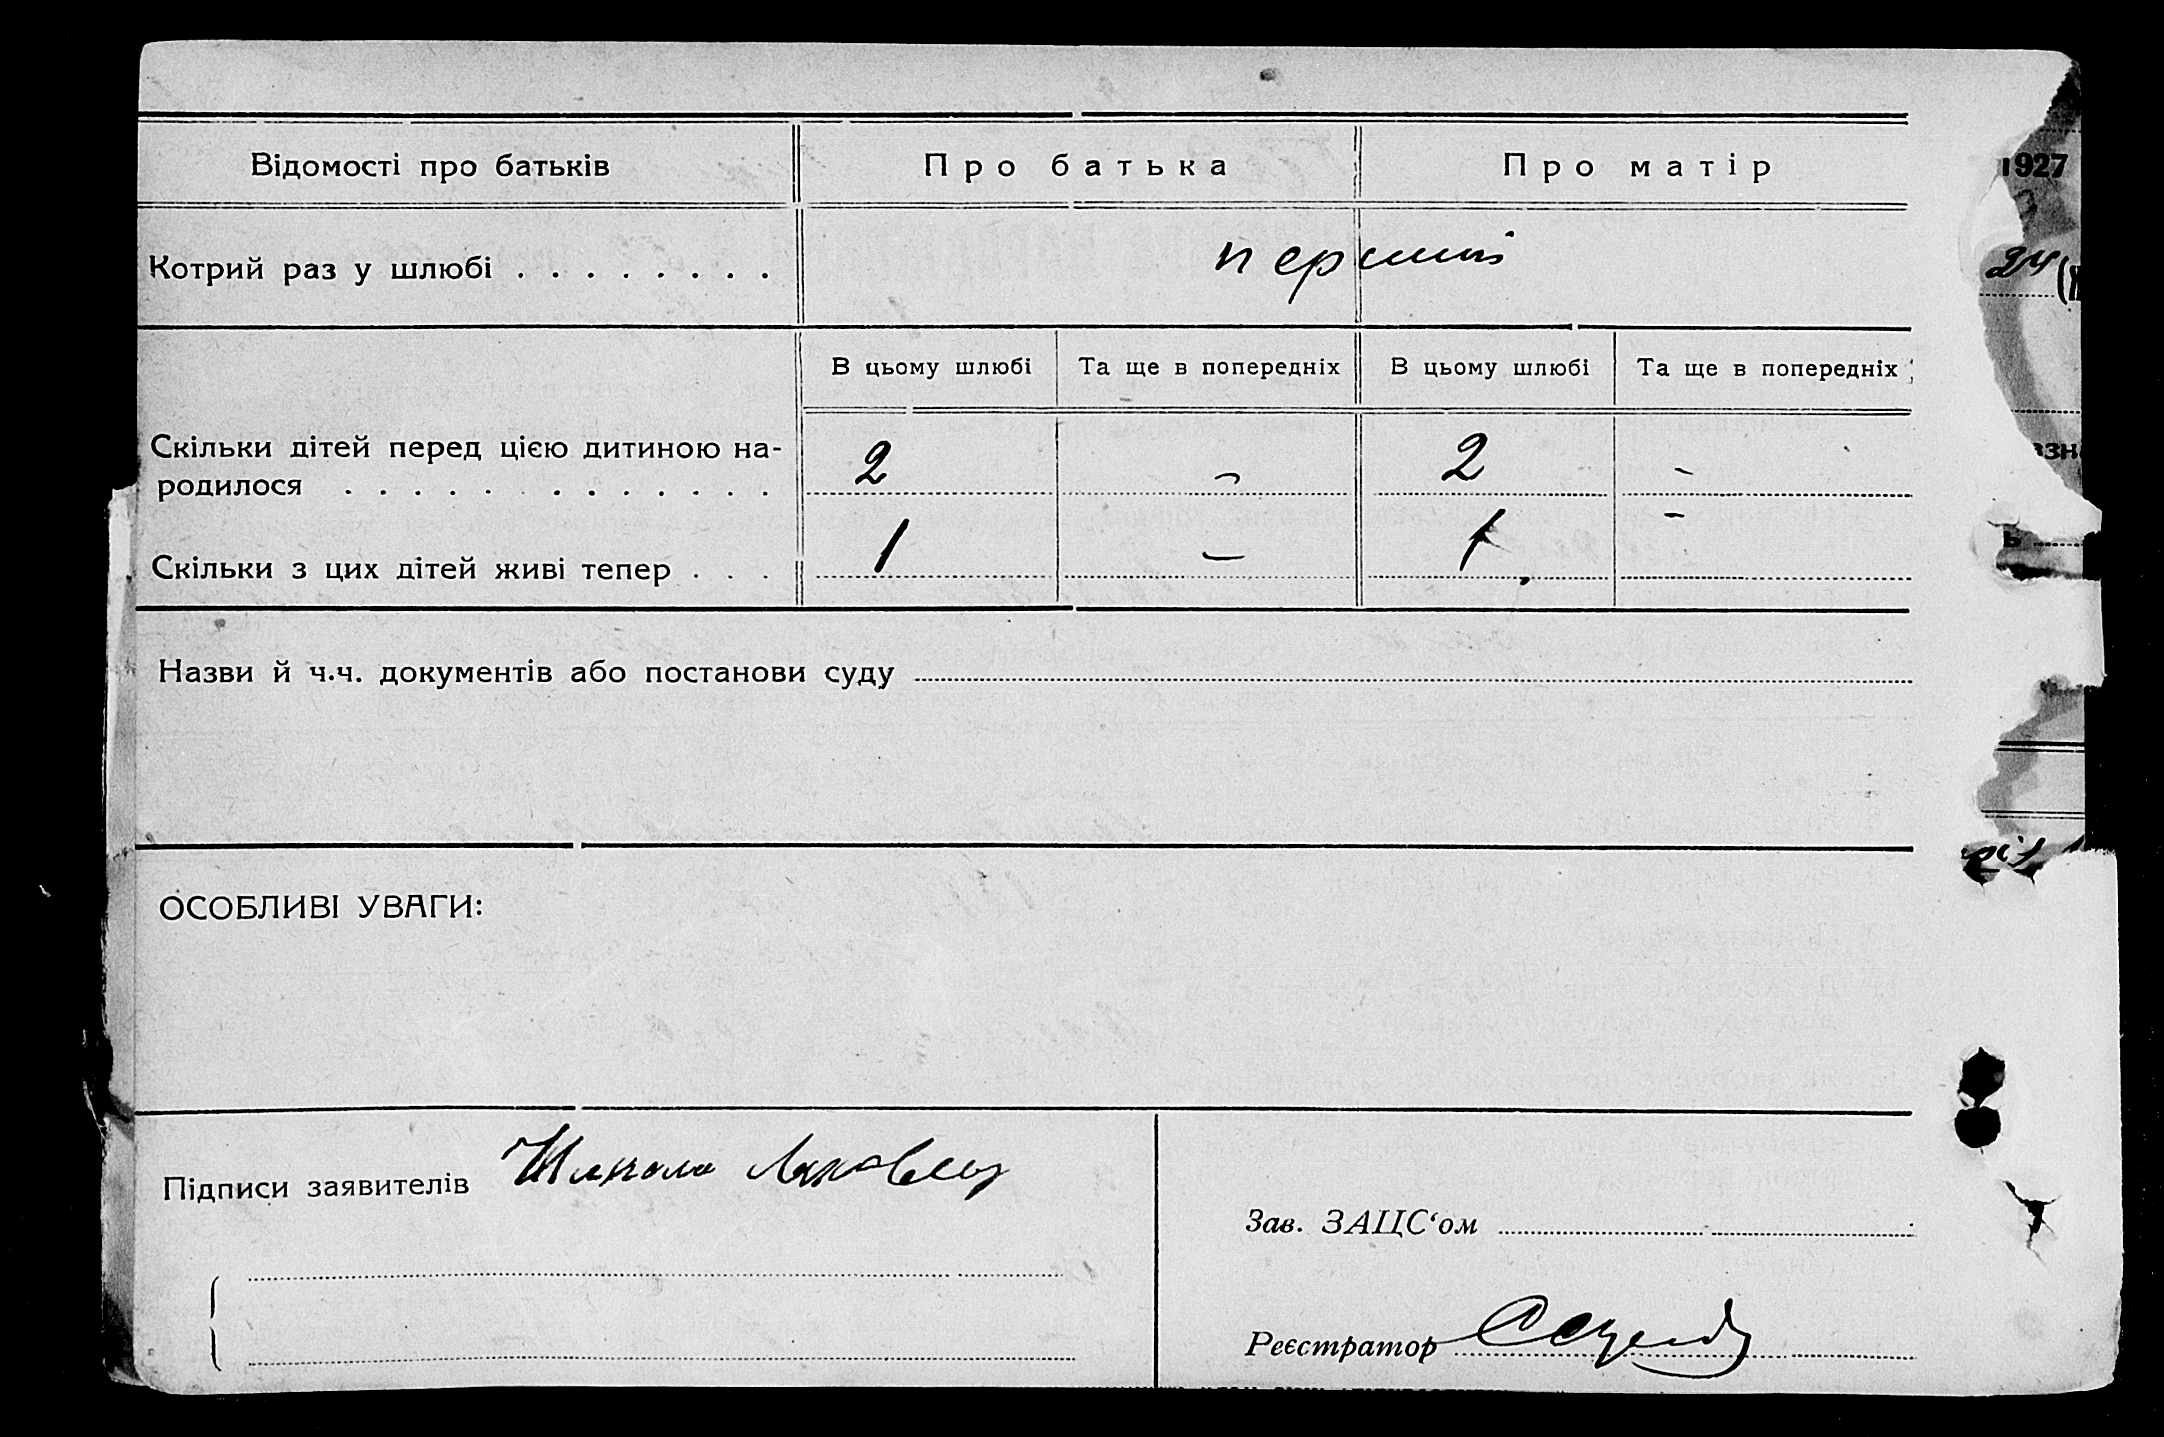 Відомості про батьків Про батька Про матір
1927
Котрий раз у шлюбі . . . . . . . . перший
24
В цьому шлюбі Та ще в попередніх В цьому шлюбі Та ще в попередніх
Скільки дітей перед цією дитиною на-
родилося . . . . . . . . . . . . . 2 - 2 -
Скільки з цих дітей живі тепер . . . 1 - 1 -
Назви й ч.ч. документів або постанови суду
ОСОБЛИВІ УВАГИ:
Підписи заявителів
Зав. ЗАЦС‘ом
Реєстратор